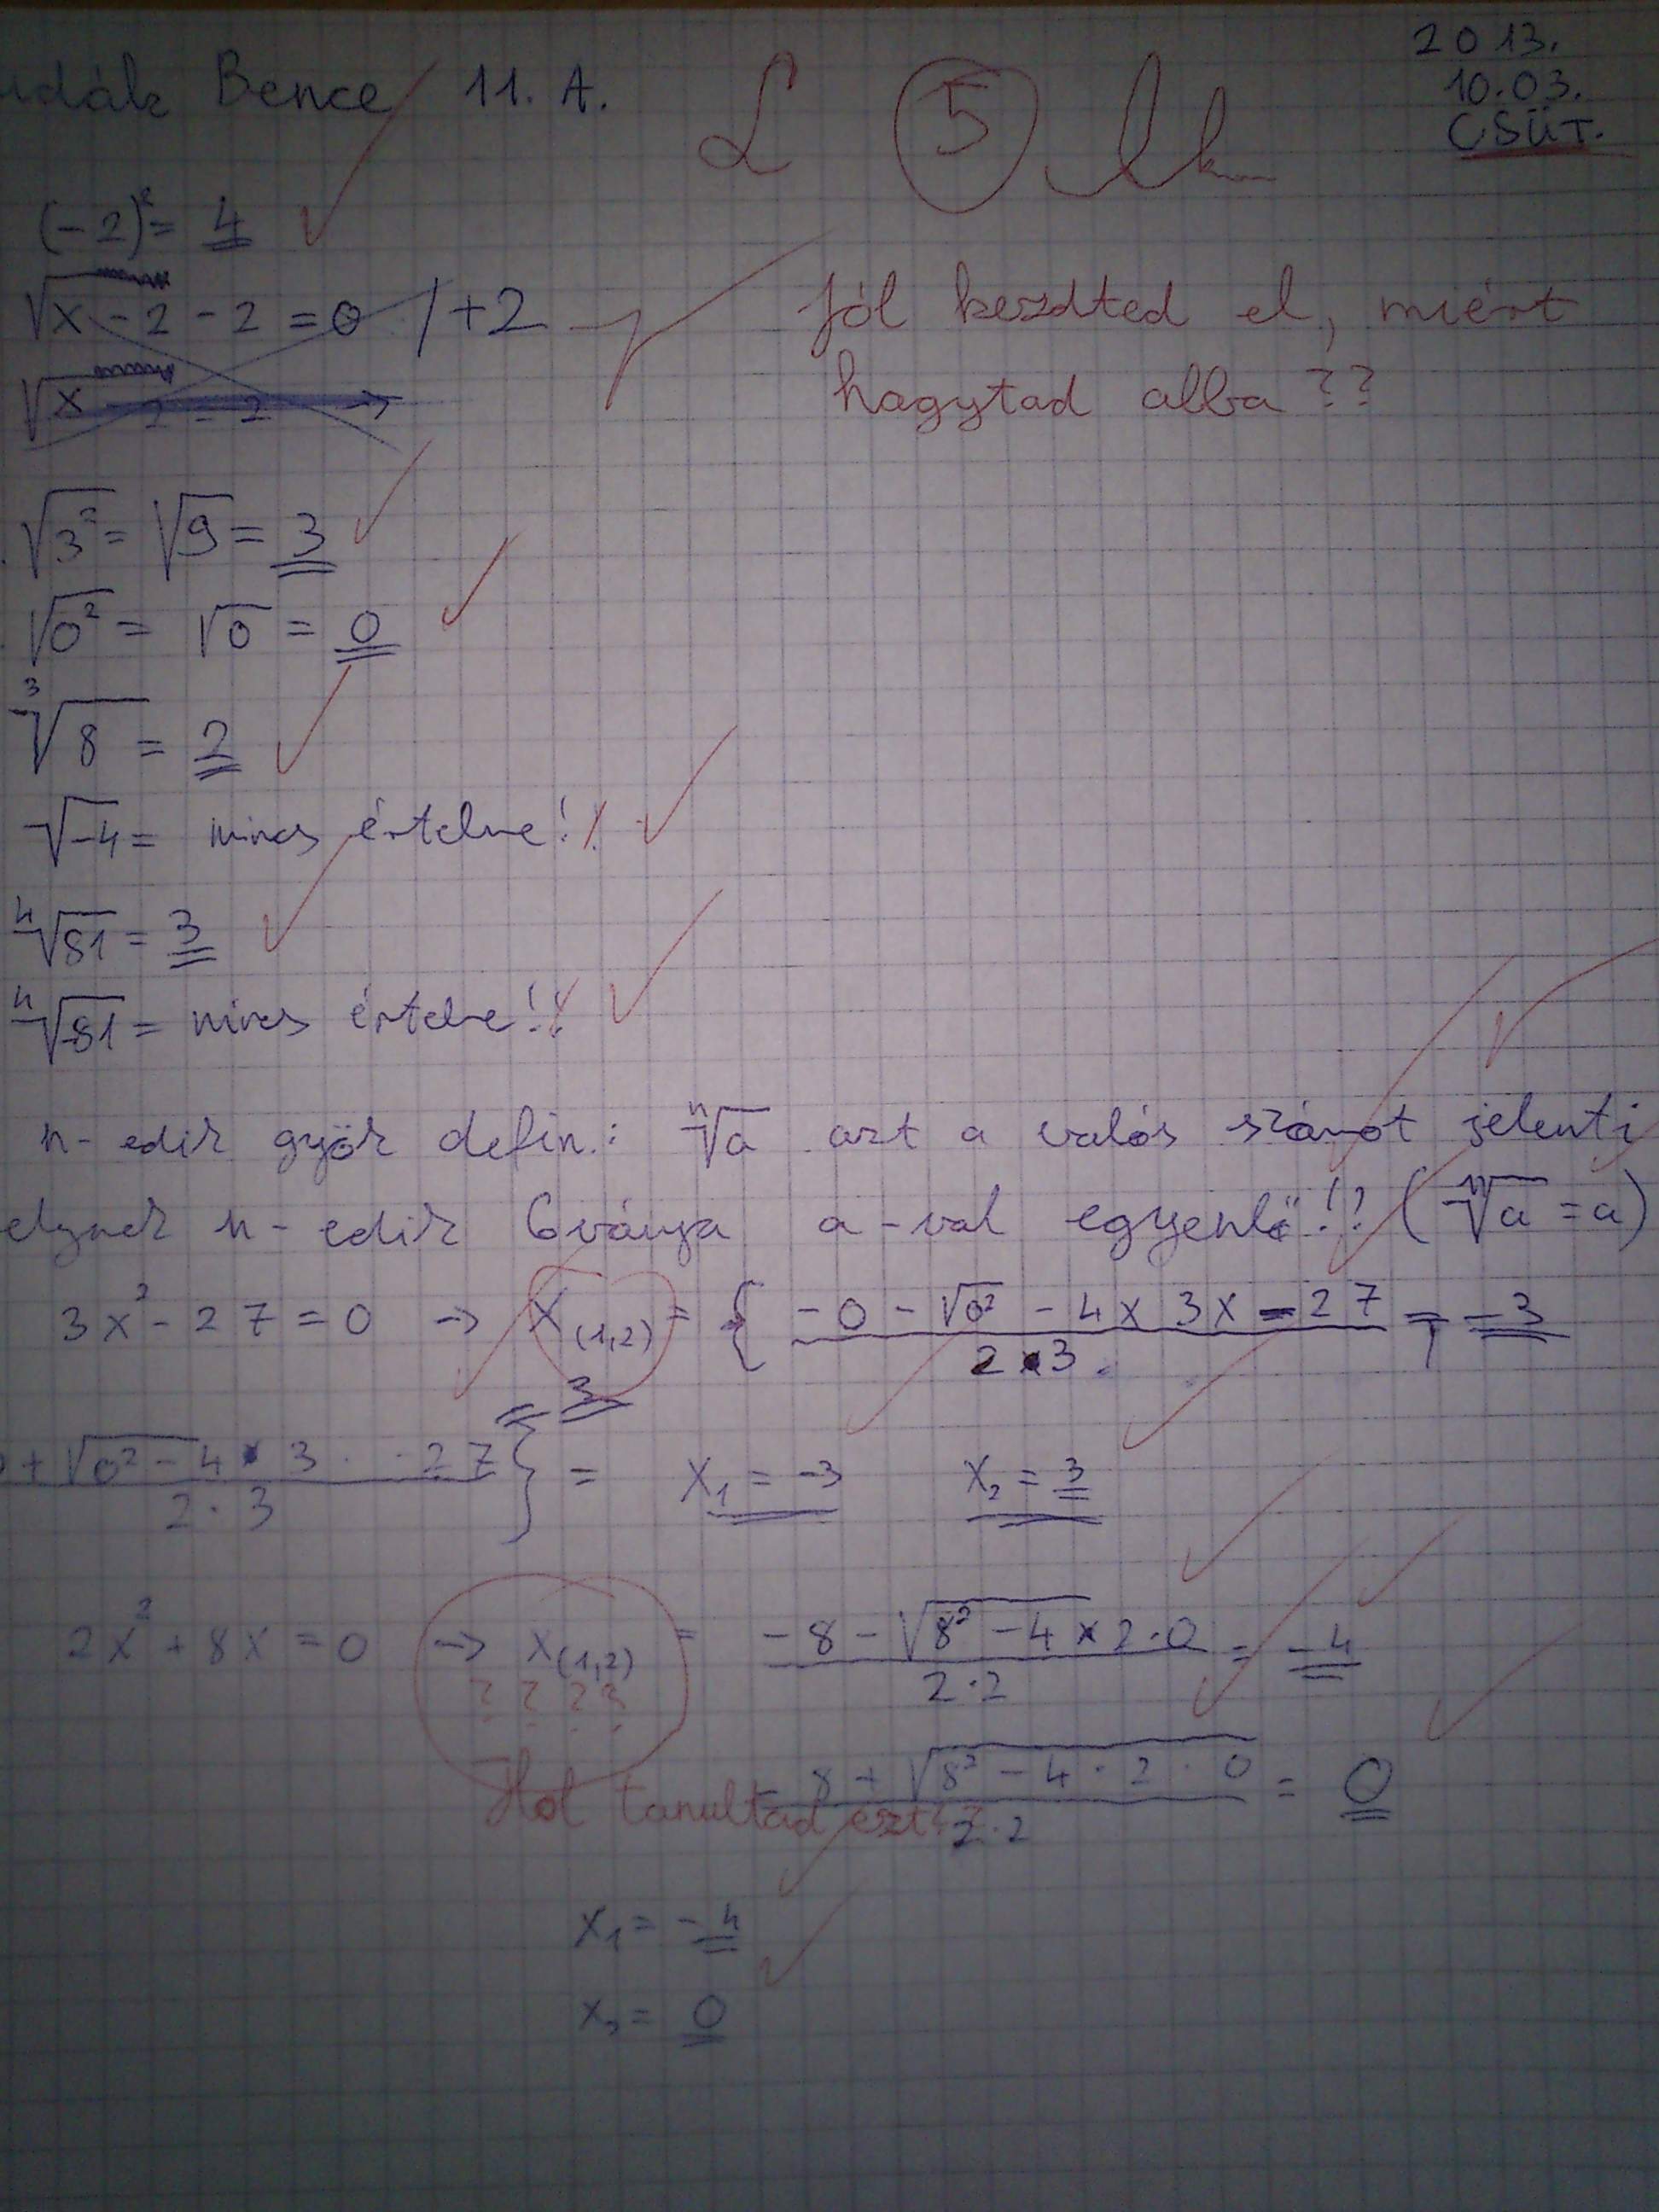 Bence 11. A.
5
2013.
10.03.
CSÜT.
(-2)² = 4
√x - 2 - 2 = 0 /+2
Jól kezdted el, miért
√x - 2 = 2 →
hagytad abba??
√3² = √9 = 3
√0² = √0 = 0
³√8 = 2
√-4 = nincs értelme!!
⁴√81 = 3
⁴√-81 = nincs értelme!!
n-edik gyök defin.: ⁿ√a azt a valós számot jelenti
elynek n-edik hványa a-val egyenlő!! (ⁿ√aⁿ = a)
3x² - 27 = 0 → X(1,2) = { (-0 - √0² - 4 x 3 x -27) / (2 · 3) = -3
= 3
+ √0² - 4 · 3 · -27 / 2 · 3 } = X₁ = -3 X₂ = 3
2x² + 8x = 0 → X(1,2) = (-8 - √8² - 4 x 2 · 0) / (2 · 2) = -4
? ? ? ?
(-8 + √8² - 4 · 2 · 0) / (2 · 2) = 0
Hol tanultad ezt??
X₁ = -4
X₂ = 0